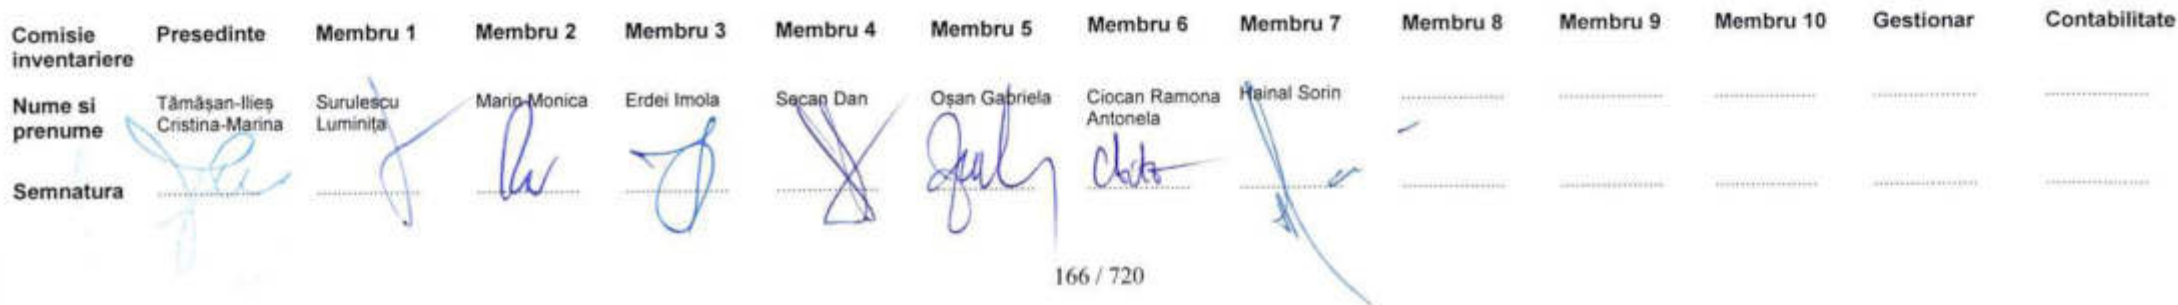 Comisie inventariere Presedinte Membru 1 Membru 2 Membru 3 Membru 4 Membru 5 Membru 6 Membru 7 Membru 8 Membru 9 Membru 10 Gestionar Contabilitate
Nume si prenume Tămășan-Ilieș Cristina-Marina Surulescu Luminița Marin Monica Erdei Imola Secan Dan Oșan Gabriela Ciocan Ramona Antonela Hainal Sorin
Semnatura
166 / 720